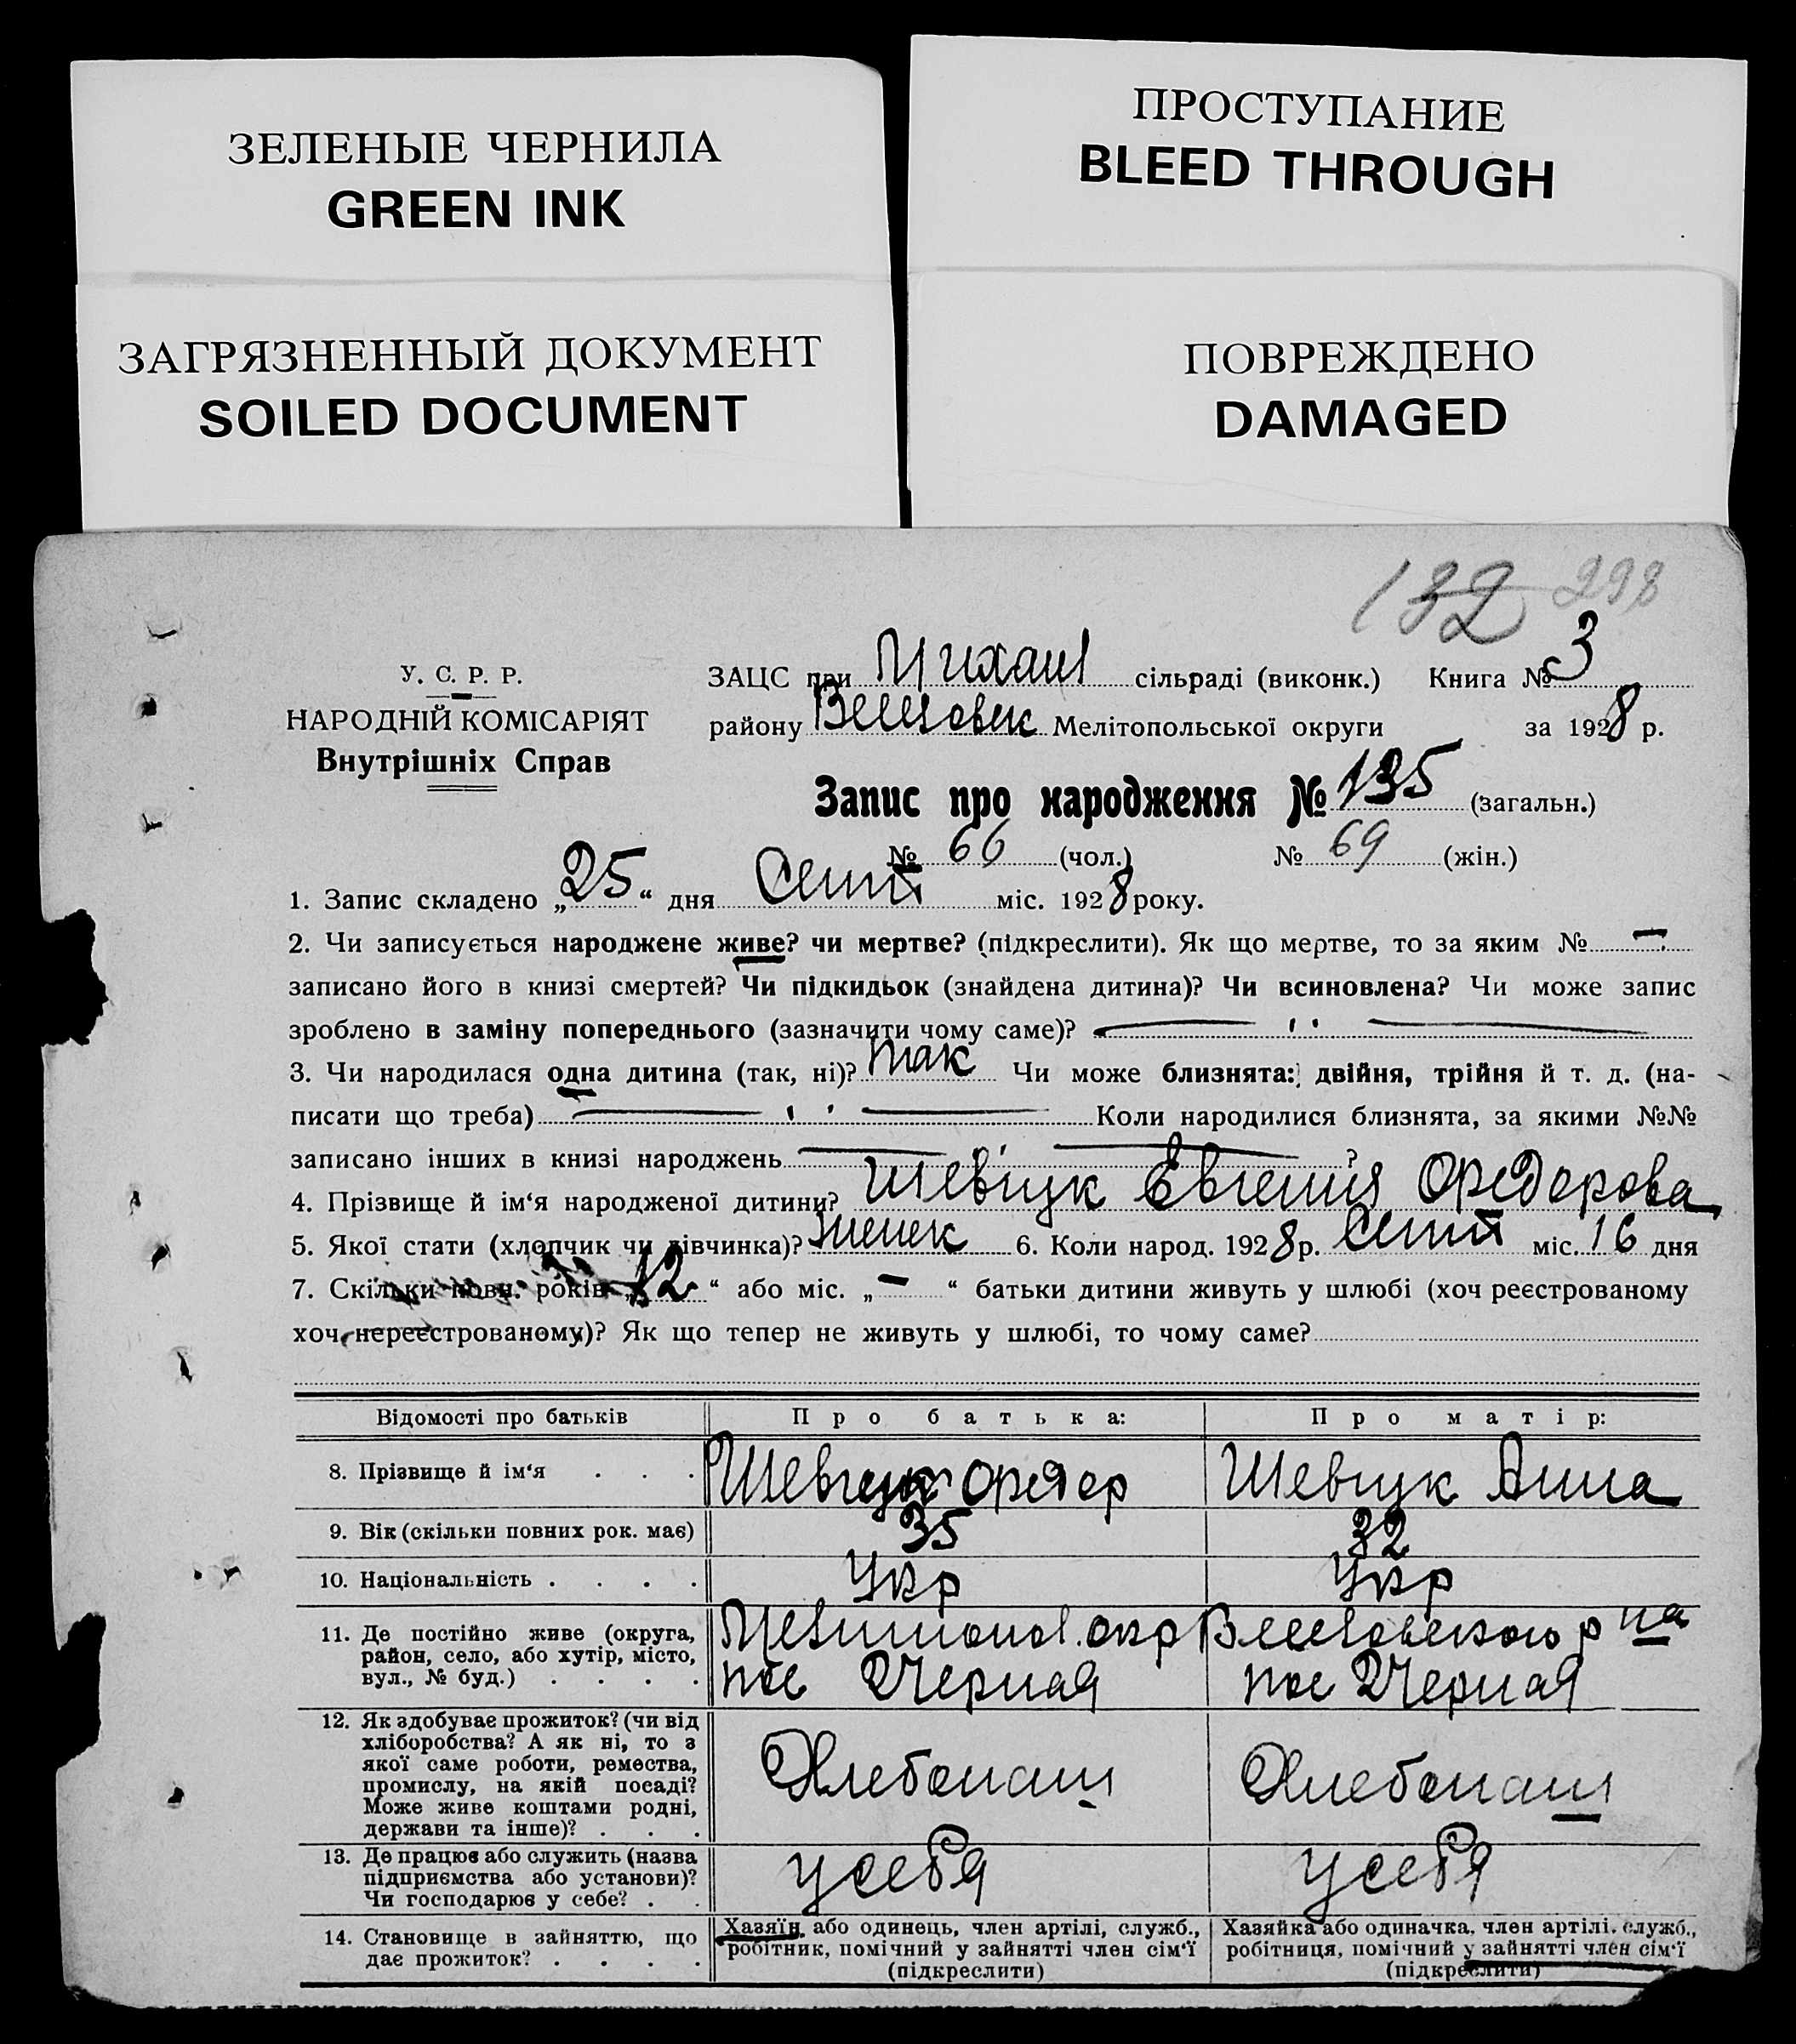 ЗЕЛЕНЫЕ ЧЕРНИЛА
GREEN INK
ПРОСТУПАНИЕ
BLEED THROUGH
ЗАГРЯЗНЕННЫЙ ДОКУМЕНТ
SOILED DOCUMENT
ПОВРЕЖДЕНО
DAMAGED
132 298
У. С. Р. Р.
НАРОДНІЙ КОМІСАРІЯТ
Внутрішніх Справ
ЗАЦС при Михайл сільраді (виконк.) Книга № 3
району Веселовск Мелітопольської округи за 1928 р.
Запис про народження № 135 (загальн.)
№ 66 (чол.) № 69 (жін.)
1. Запис складено „25“ дня Сент міс. 1928 року.
2. Чи записується народжене живе? чи мертве? (підкреслити). Як що мертве, то за яким № —
записано його в книзі смертей? Чи підкидьок (знайдена дитина)? Чи всиновлена? Чи може запис
зроблено в заміну попереднього (зазначити чому саме)? — " —
3. Чи народилася одна дитина (так, ні)? так Чи може близнята: двійня, трійня й т. д. (на-
писати що треба) — " — Коли народилися близнята, за якими №№
записано інших в книзі народжень — " — ?
4. Прізвище й ім‘я народженої дитини? Шевчук Евгения Федорова
5. Якої стати (хлопчик чи дівчинка)? женск 6. Коли народ. 1928 р. Сент міс. 16 дня
7. Скільки повн. років „12“ або міс. „—“ батьки дитини живуть у шлюбі (хоч реєстрованому
хоч нереєстрованому)? Як що тепер не живуть у шлюбі, то чому саме?
Відомості про батьків Про батька: Про матір:
8. Прізвище й ім‘я . . . Шевчук Федор Шевчук Анна
9. Вік (скільки повних рок. має) 35 32
10. Національність . . . . Укр Укр
11. Де постійно живе (округа, район, село, або хутір, місто, вул., № буд.) . . . .
Мелитопол. окр Веселовского р на
пос Чер­ная пос Черная
12. Як здобуває прожиток? (чи від хліборобства? А як ні, то з якої саме роботи, ремества, промислу, на якій посаді? Може живе коштами родні, держави та інше)? . . .
Хлебопаш Хлебопаш
13. Де працює або служить (назва підприємства або установи)? Чи господарює у себе? . .
у себя у себя
14. Становище в зайняттю, що дає прожиток? . . . .
Хазяїн, або одинець, член артілі, служб., робітник, помічний у зайнятті член сім‘ї (підкреслити)
Хазяйка або одиначка, член артілі, служб., робітниця, помічний у зайнятті член сім‘ї (підкреслити)